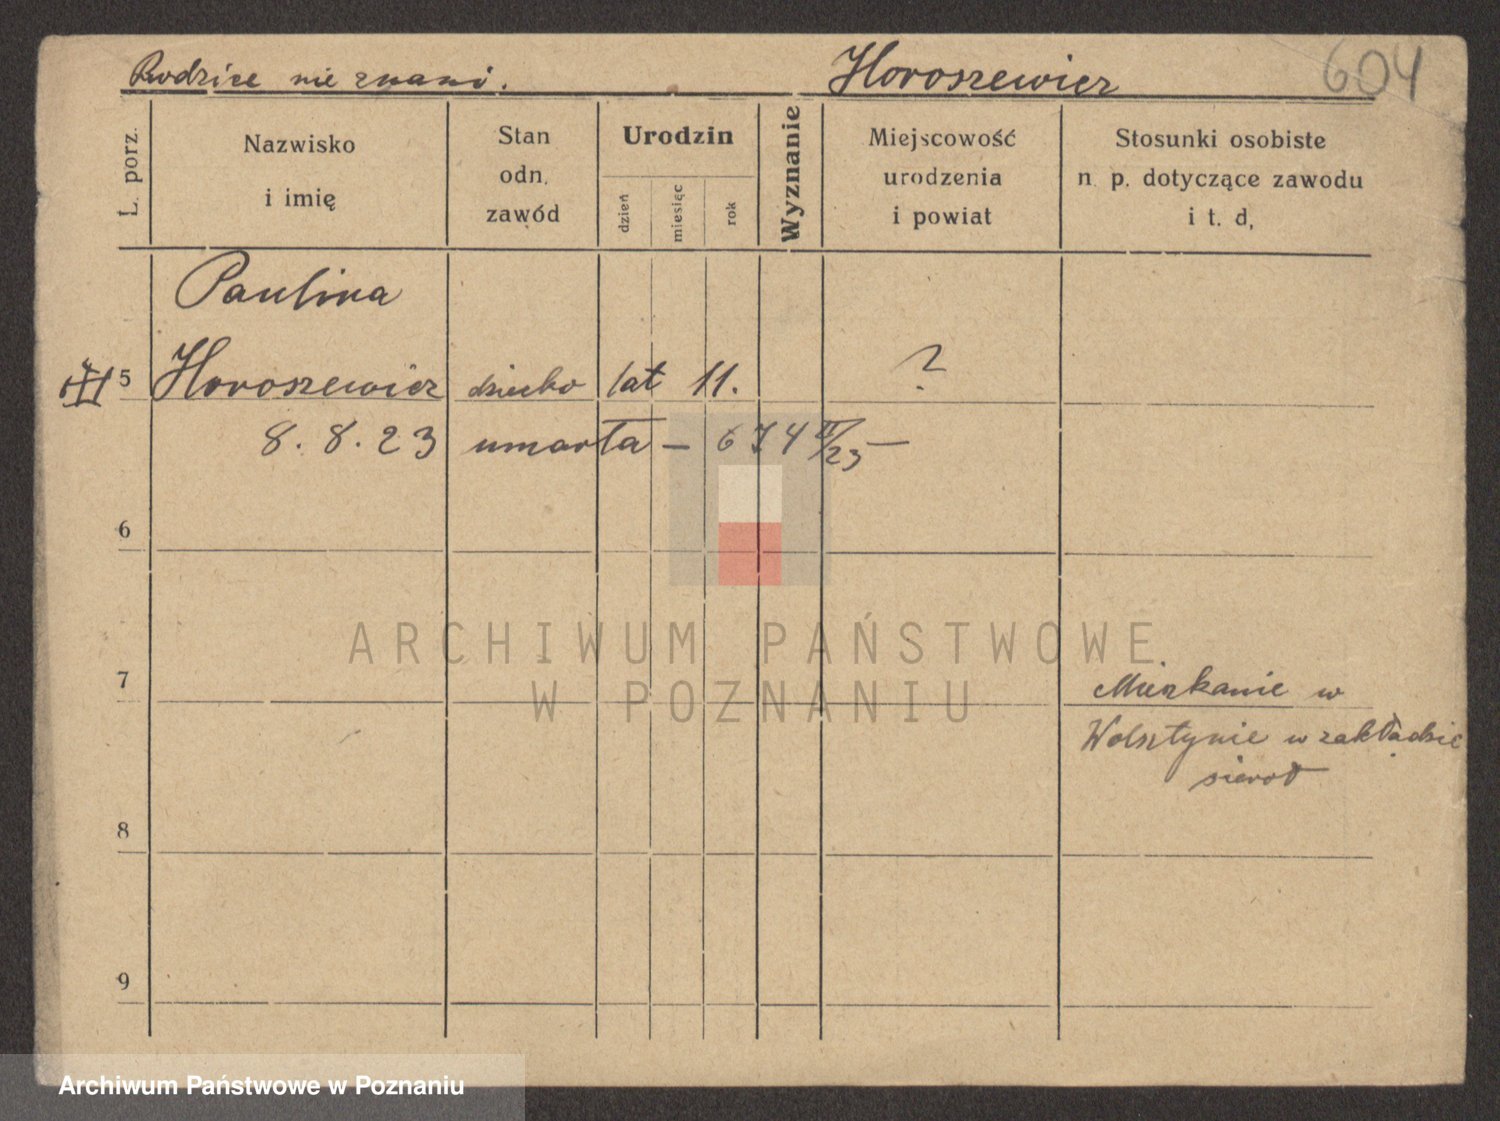 604
Rodzice nie znani. Horoszewicz
L. porz.
Nazwisko
i imię
Stan
odn.
zawód
Urodzin
dzień
miesiąc
rok
Wyznanie
Miejscowość
urodzenia
i powiat
Stosunki osobiste
n. p. dotyczące zawodu
i t. d,
Paulina
5 Horoszewicz dziecko lat 11. ?
8. 8. 23 umarła – 674 II/23 –
6
7
Mieszkanie w
Wolsztynie w zakładzie
sierot
8
9
ARCHIWUM PAŃSTWOWE
W POZNANIU
Archiwum Państwowe w Poznaniu